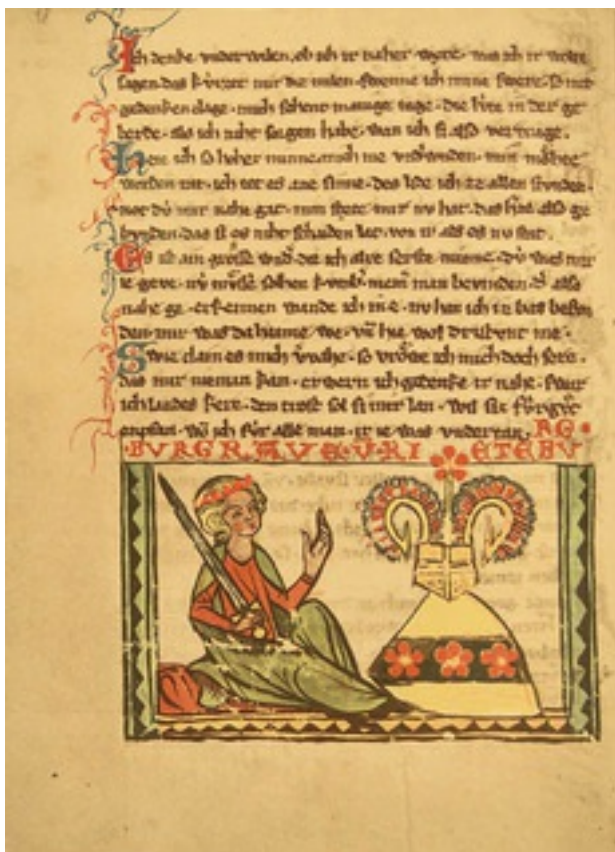 Ich denke vnder wilen. ob ich ir naher were. was ich ir wolte
sagen. das kvrzet mir die milen. swenne ich mine swere. so mit
gedenken clage. mich sehent manage tage. die lvte in der ge
berde. als ich niht sorgen habe. wan ich si also vertrage.
Hete ich so hoher minne. mich nie vnd'wnden. min möhte
werden rat. ich tet es ane sinne. des lide ich ze allen stvnden.
not dv mir nahe gat. min stete mir nv hat. das h'ze also ge
bvnden. das si es niht schaiden lat. von ir als es nv stat.
Es ist ain grosse wnd'. die ich alre serste minne. dv was mir
ie geve. nv mvsse solhen kvmb'. niemer man bevinden d' also
nahe ge. erkennen wande ich in e. nv han ich in bas befvn
den. mir was da haime we. vn hie wol dristvnt me.
Swie clain es mich v'vahe. so vröwe ich mich doch sere.
das mir nieman kan. erwern ich gedenke ir nahe. swar
ich landes kere. den trost sol si mir lan. wil sis fvr gvt
enpfan. ich fvr alle man. ir ie was vndertan. RG.
BVRGRAVE. V. RIETEBV